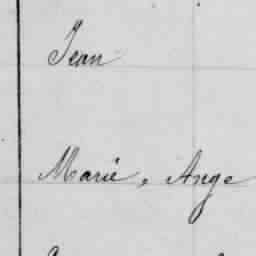 Jean
Marie, Ange